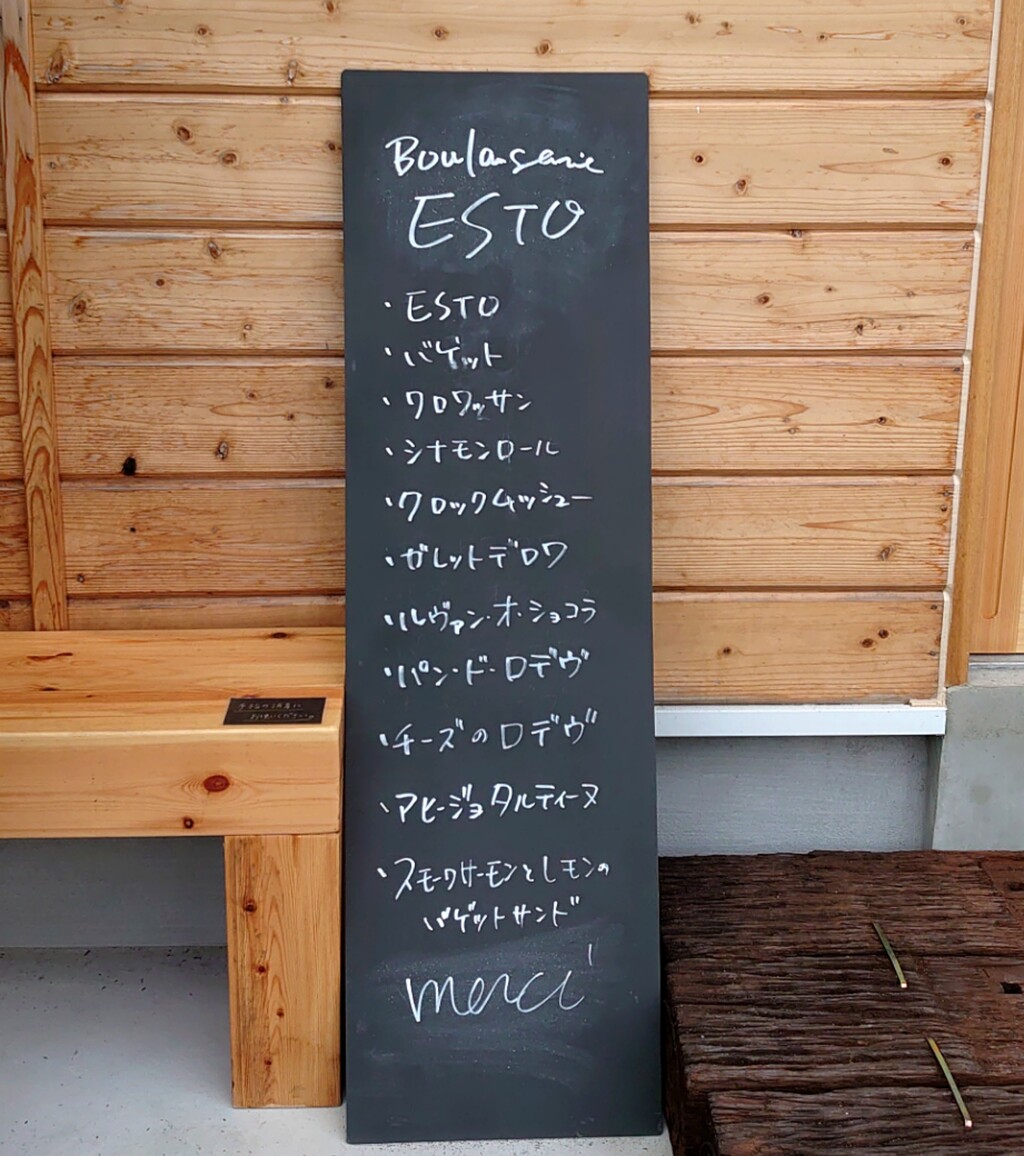 Boulangerie
ESTO
・ESTO
・バゲット
・クロワッサン
・シナモンロール
・クロックムッシュー
・ガレットデロワ
・ルヴァン・オ・ショコラ
・パン・ド・ロデヴ
・チーズのロデヴ
・アヒージョタルティーヌ
・スモークサーモンとレモンの
バゲットサンド
merci